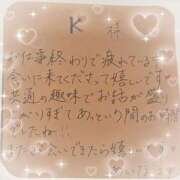 K 様
お仕事終わりで疲れている
会いに来てくださって嬉しいです
共通の趣味でお話が盛り
上がりすぎてあっという間のお時
でしたね!!
またお会いできたら嬉